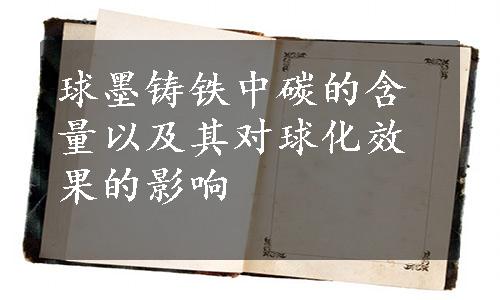 球墨铸铁中碳的含
量以及其对球化效
果的影响